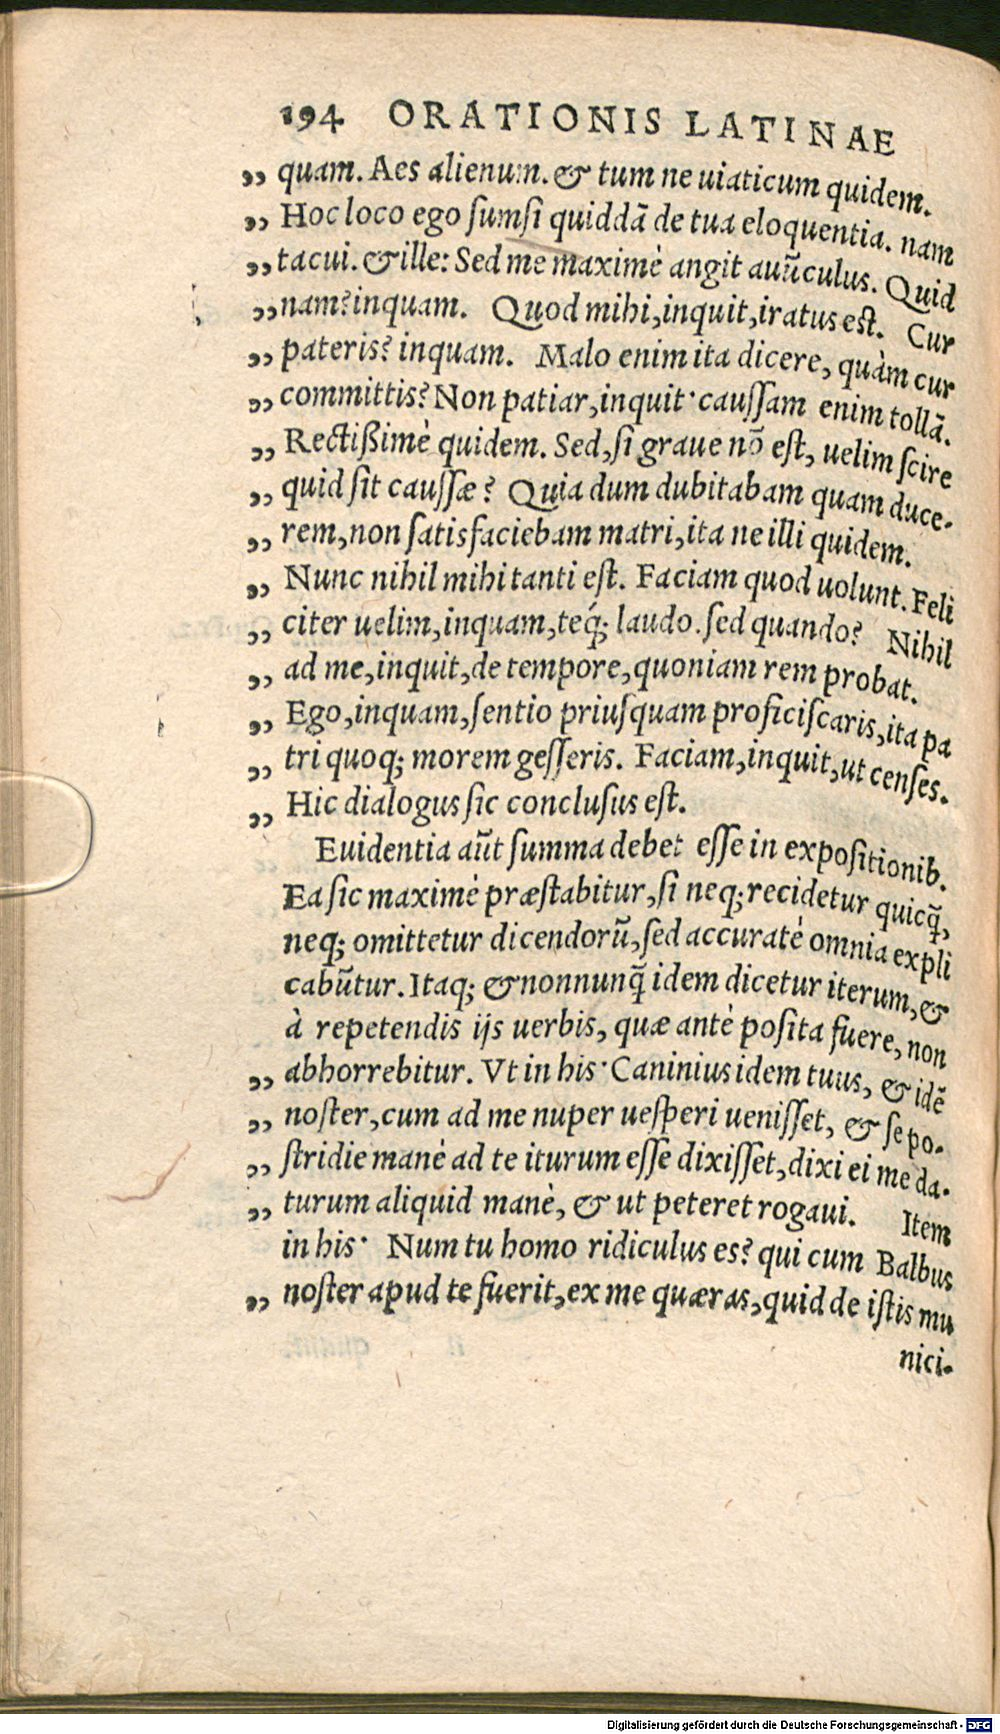 194 ORATIONIS LATINAE
„ quam. Aes alienum. & tum ne uiaticum quidem.
„ Hoc loco ego ſumſi quiddā de tua eloquentia. nam
„ tacui. & ille: Sed me maximè angit auūculus. Quid
„ nam? inquam. Quod mihi, inquit, iratus est. Cur
„ pateris? inquam. Malo enim ita dicere, quàm cur
„ committis? Non patiar, inquit· cauſſam enim tollā.
„ Rectißimè quidem. Sed, ſi graue nō est, uelim ſcire
„ quid ſit cauſſæ? Quia dum dubitabam quam duce-
„ rem, non ſatisfaciebam matri, ita ne illi quidem.
„ Nunc nihil mihi tanti est. Faciam quod uolunt. Feli
„ citer uelim, inquam, teq́; laudo. ſed quando? Nihil
„ ad me, inquit, de tempore, quoniam rem probat.
„ Ego, inquam, ſentio priuſquam proficiſcaris, ita pa
„ tri quoq; morem geſſeris. Faciam, inquit, ut cenſes.
„ Hic dialogus ſic concluſus est.
Euidentia aūt ſumma debet eſſe in expoſitionib.
Ea ſic maximè præſtabitur, ſi neq; recidetur quicq̄,
neq; omittetur dicendorū, ſed accuratè omnia expli
cabūtur. Itaq; & nonnunq̄ idem dicetur iterum, &
à repetendis ijs uerbis, quæ antè poſita fuere, non
„ abhorrebitur. Vt in his· Caninius idem tuus, & idē
„ noſter, cum ad me nuper ueſperi ueniſſet, & ſe po-
„ ſtridie manè ad te iturum eſſe dixiſſet, dixi ei me da-
„ turum aliquid manè, & ut peteret rogaui. Item
in his· Num tu homo ridiculus es? qui cum Balbus
„ noſter apud te fuerit, ex me quæras, quid de iſtis mu
nici-
Digitalisierung gefördert durch die Deutsche Forschungsgemeinschaft - DFG